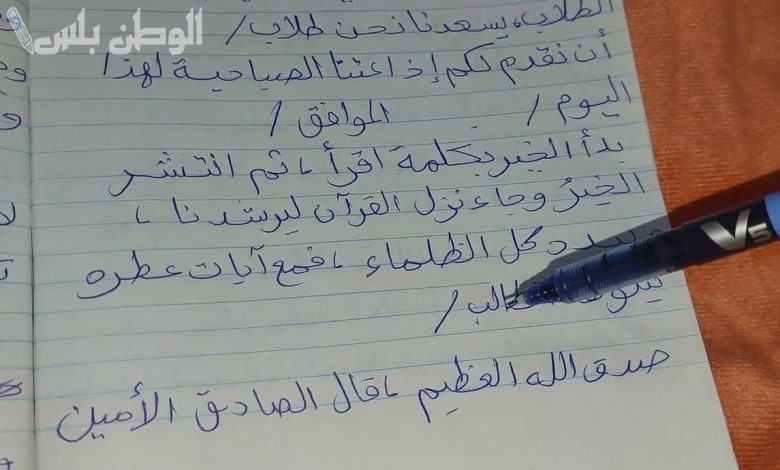 الوطن بلس
الطلاب، يسعدنا نحن طلاب /
أن نقدم لكم إذاعتنا الصباحية لهذا
اليوم / الموافق /
بدأ الخير بكلمة اقرأ، ثم انتشر
الخيرُ وجاء نزل القرآن ليرشدنا،
كل الظلماء، فمع آيات عطره
/
صدق الله العظيم، قال الصادق الأمين
V5